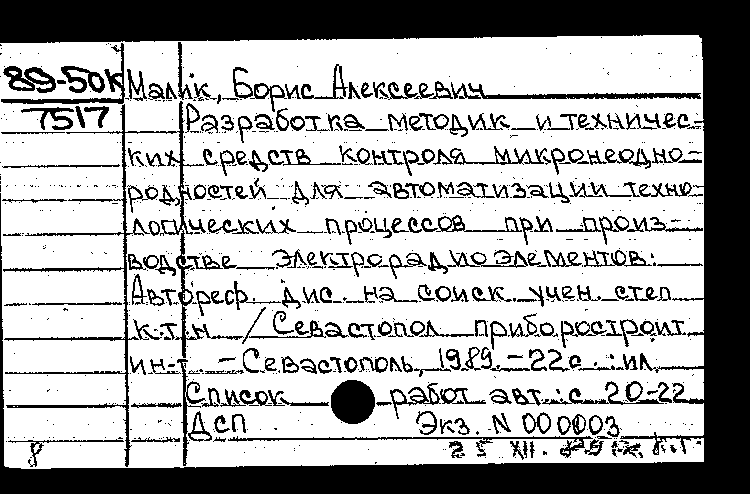 89-50К Малик, Борис Алексеевич
7517 Разработка методик и техничес-
ких средств контроля микронеодно-
родностей для автоматизации техно-
логических процессов при произ-
водстве электрорадиоэлементов:
Автореф. дис. на соиск. учен. степ.
к.т.н. / Севастопол. приборостроит.
ин-т. - Севастополь, 1989. - 22 с. : ил.
Список работ авт.: с 20-22
ДСП Экз. N 000003
8 25 XII. 89